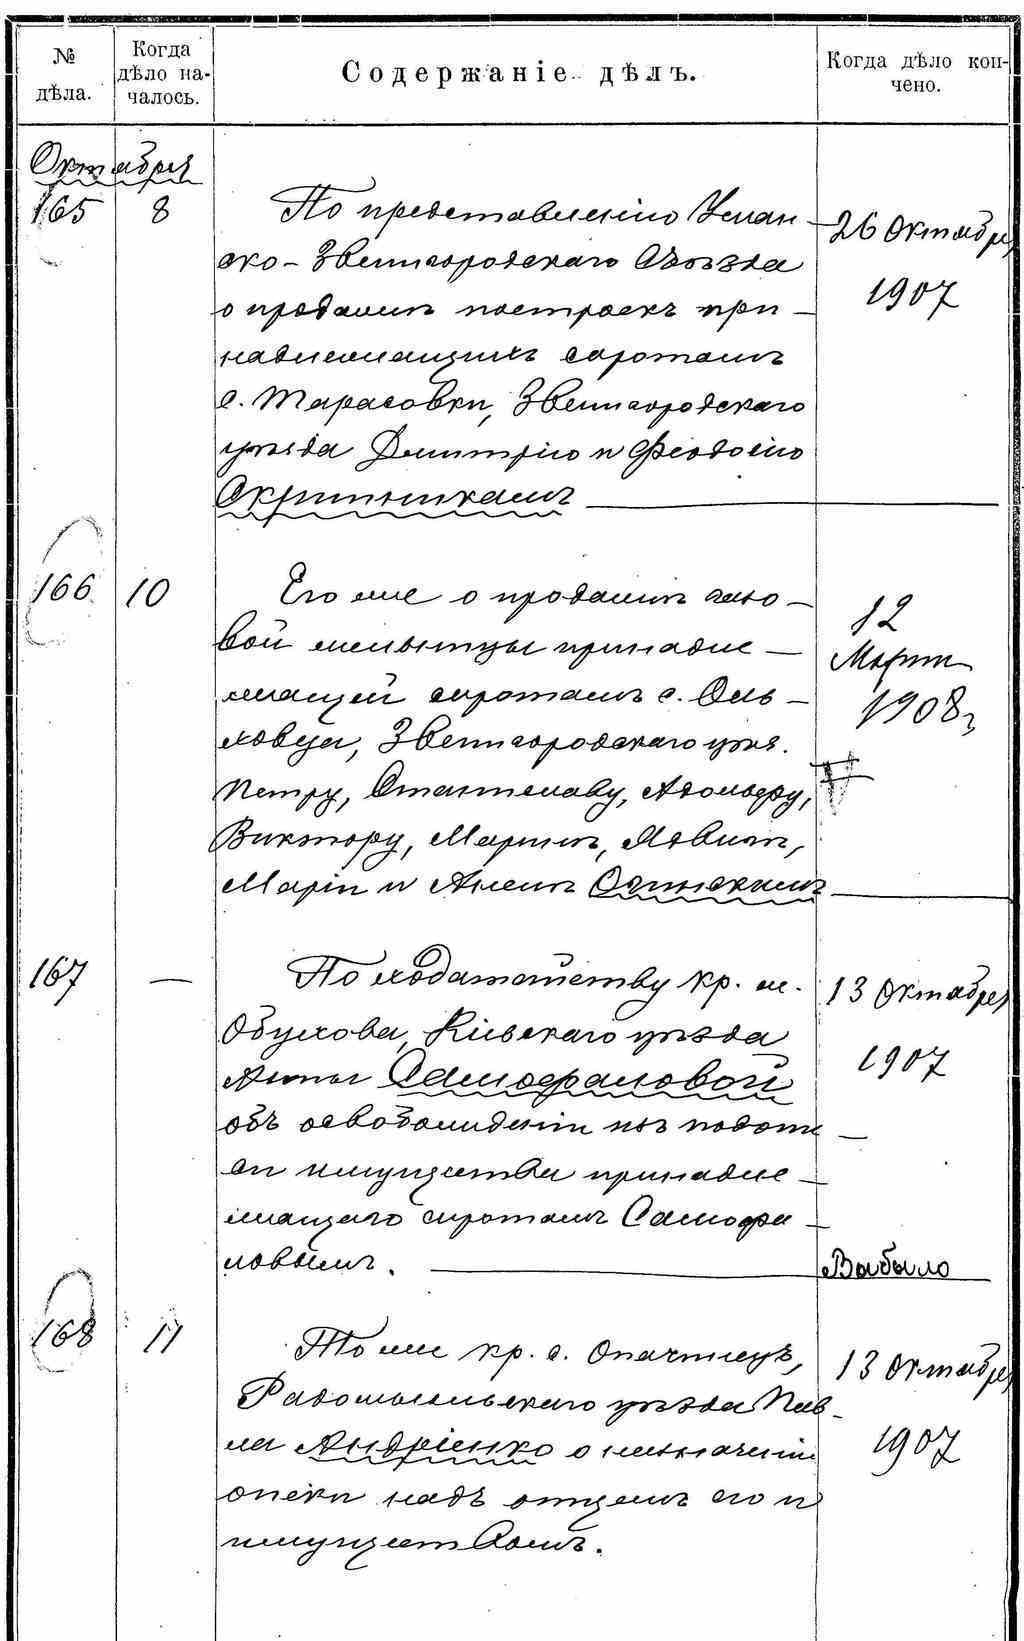 № дѣла.
Когда дѣло на-
чалось.
Содержаніе дѣлъ.
Когда дѣло кон-
чено.
Октября
165 8 По представленію Уман-
ско-Звенигородскаго Съѣзда
о продажѣ построекъ при-
надлежащихъ сиротамъ
с. Тарасовки, Звенигородскаго
уѣзда Дмитрію и Феодосію
Скрипникамъ
26 Октября
1907
166 10 Его же о продажѣ
вой мельницы принадле-
жащей сиротамъ с. Оль-
ховца, Звенигородскаго уѣз.
Петру, Станиславу, Адольфу,
Виктору, Маріи и
12
Марта
1908 г
167 — По ходатайству кр. м.
Обухова, Кіевскаго уѣзда
Анны Самофаловой
объ освобожденіи изъ подъ
си имущества принадле-
жащаго сиротамъ Самофа-
ловымъ.
13 Октября
1907
Выбыло
168 11 То же кр. с. Опачичъ,
Радомысльскаго уѣзда Пав-
ла Андріенко о назначеніи
опеки надъ отцемъ его и
имуществомъ.
13 Октября
1907